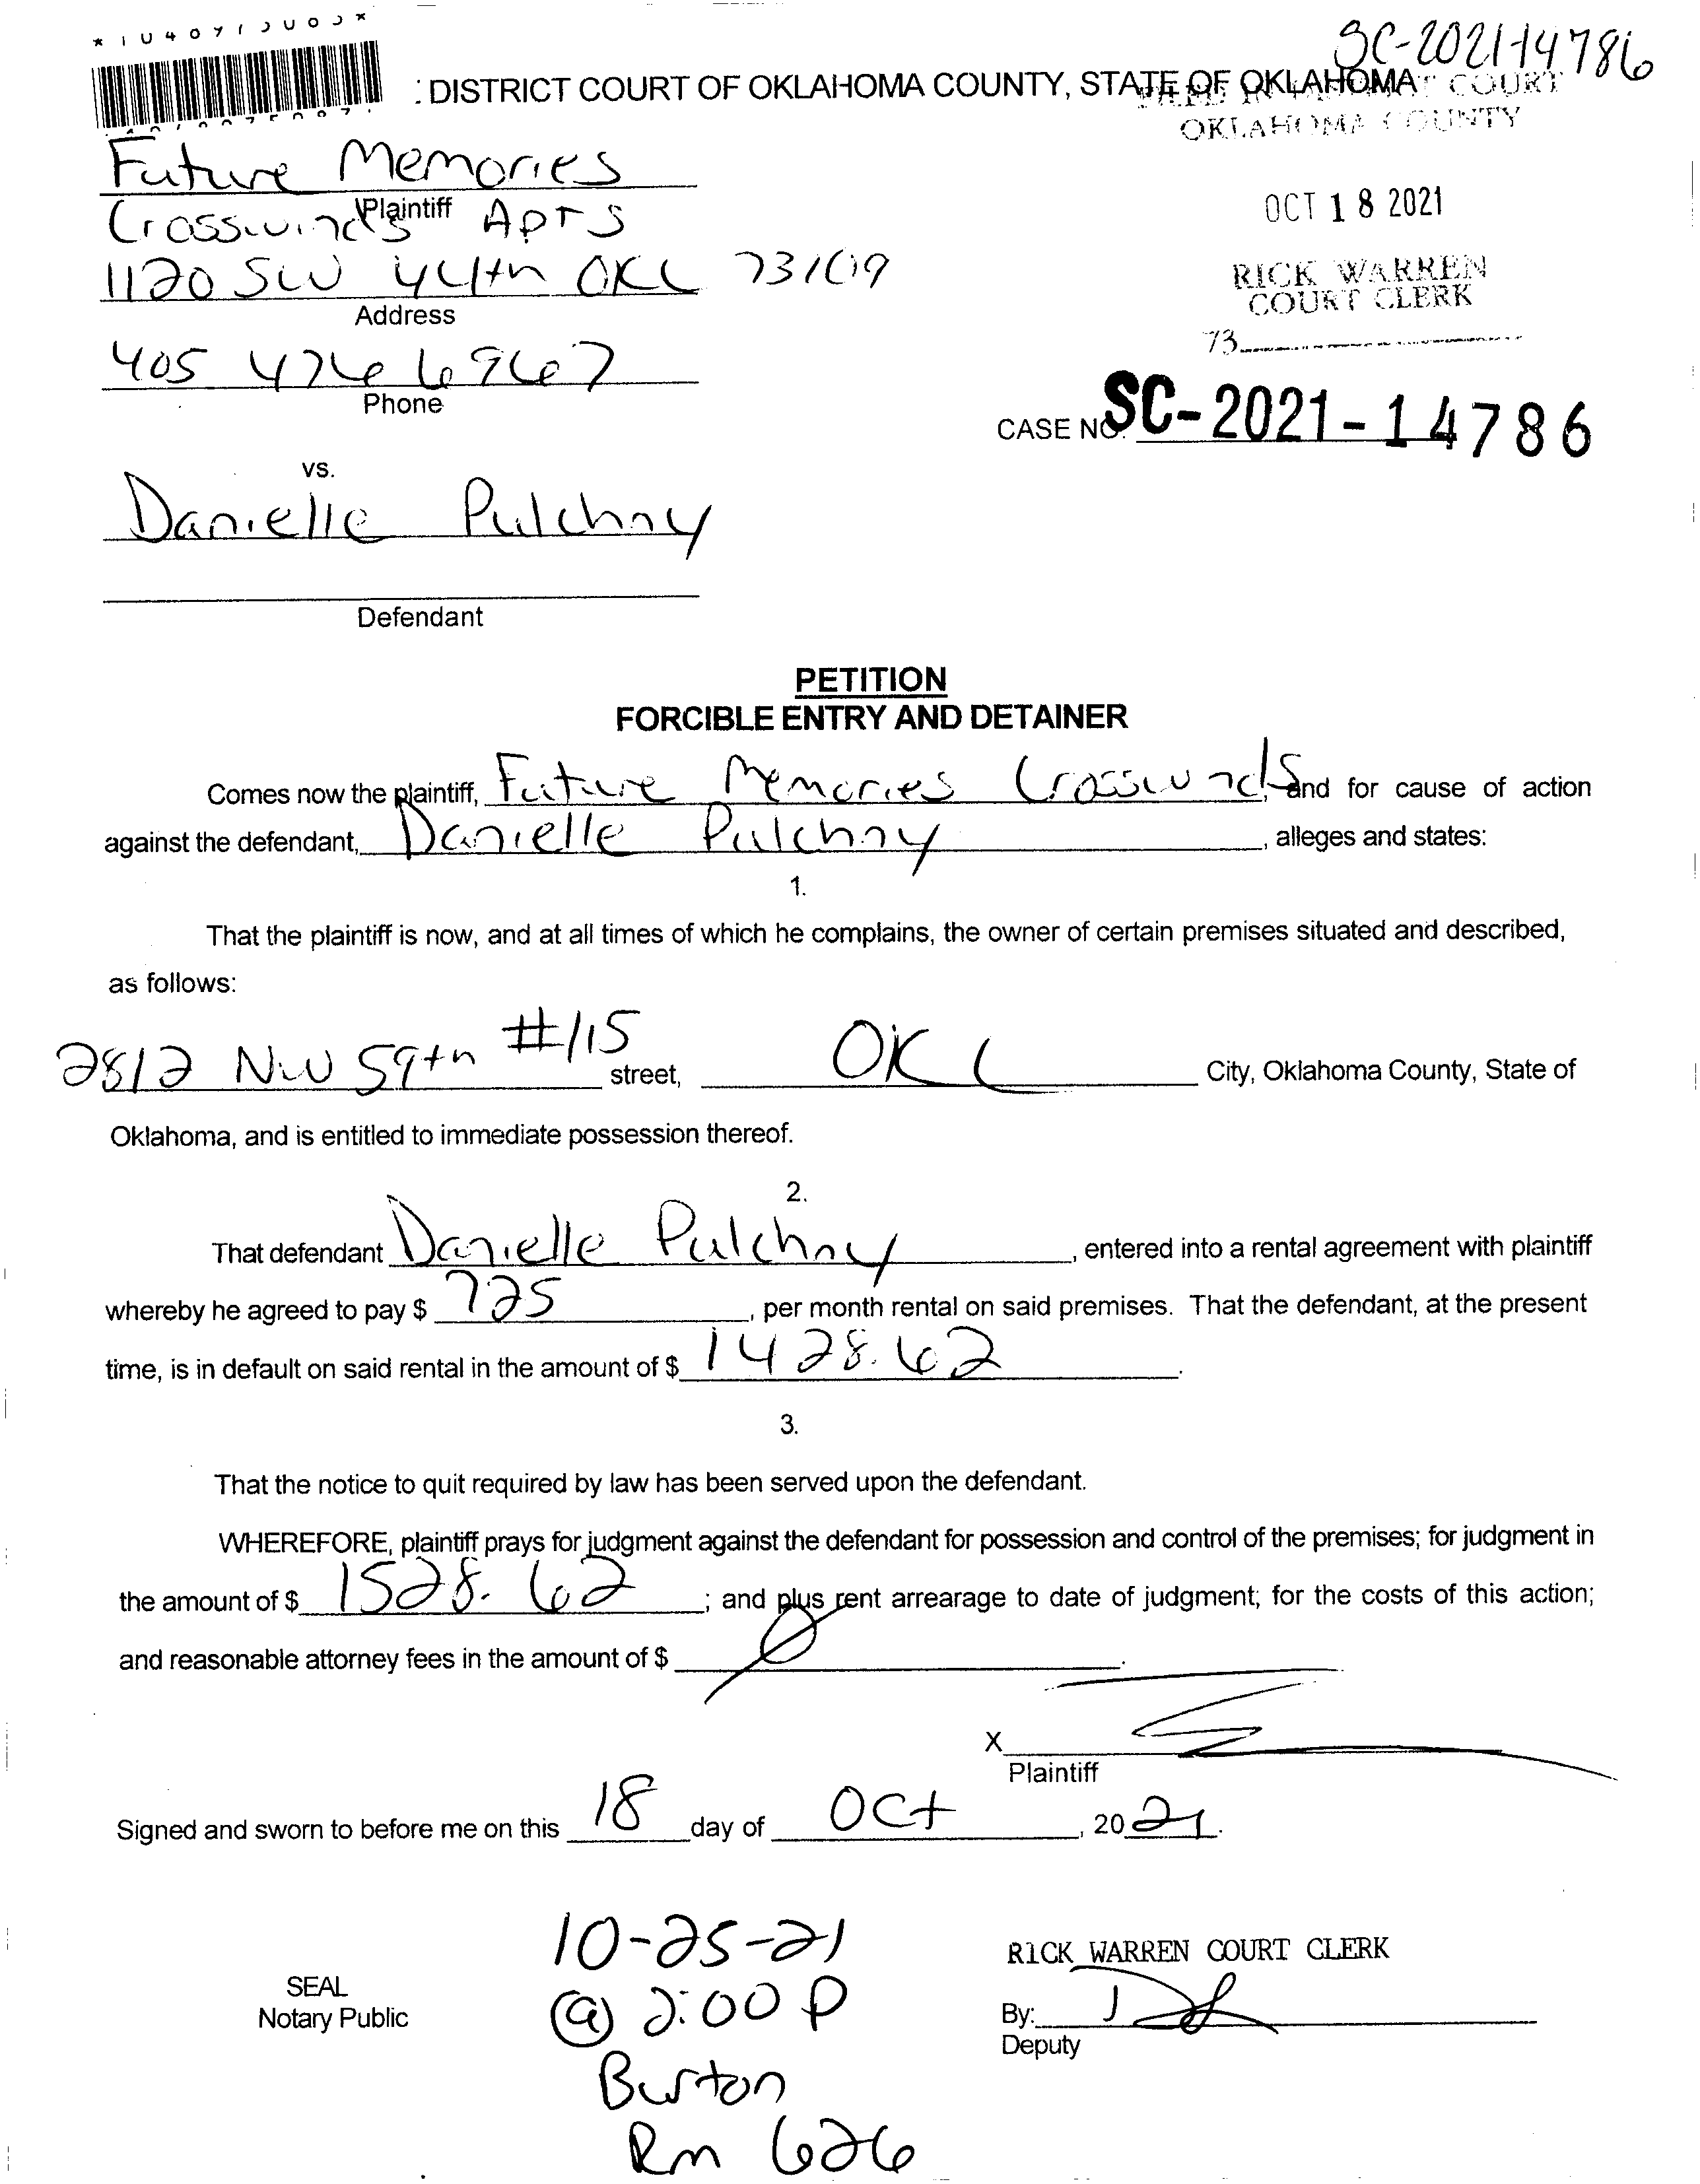 SC-2021-14786
: DISTRICT COURT OF OKLAHOMA COUNTY, STATE OF OKLAHOMA
FILED IN DISTRICT COURT
OKLAHOMA COUNTY
Future Memories
Plaintiff
Crosswinds Apts
OCT 18 2021
1120 SW 44th OKC 73109
Address
RICK WARREN
COURT CLERK
73
405 474 6967
Phone
CASE NO. SC-2021-14786
vs.
Danielle Pulchny
Defendant
PETITION
FORCIBLE ENTRY AND DETAINER
Comes now the plaintiff, Future Memories Crosswinds, and for cause of action
against the defendant, Danielle Pulchny, alleges and states:
1.
That the plaintiff is now, and at all times of which he complains, the owner of certain premises situated and described,
as follows:
2812 NW 59th #115 street, OKC City, Oklahoma County, State of
Oklahoma, and is entitled to immediate possession thereof.
2.
That defendant Danielle Pulchny, entered into a rental agreement with plaintiff
whereby he agreed to pay $ 725, per month rental on said premises. That the defendant, at the present
time, is in default on said rental in the amount of $ 1428.62.
3.
That the notice to quit required by law has been served upon the defendant.
WHEREFORE, plaintiff prays for judgment against the defendant for possession and control of the premises; for judgment in
the amount of $ 1528.62; and plus rent arrearage to date of judgment; for the costs of this action;
and reasonable attorney fees in the amount of $ 0.
X
Plaintiff
Signed and sworn to before me on this 18 day of Oct, 2021.
10-25-21
@ 2:00 P
Burton
Rm 626
SEAL
Notary Public
RICK WARREN COURT CLERK
By:
Deputy